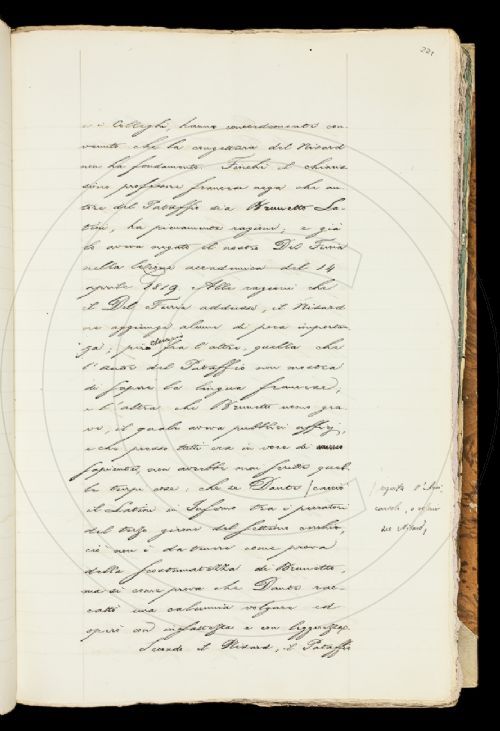 221
e i Colleghi, hanno concordemente con-
venuto che la congettura del Nisard
non ha fondamento. Finché il chiaris-
simo professore francese nega che au-
tore del Pataffio sia Brunetto La-
tini, ha pienamente ragione; e già
lo aveva negato il nostro Del Furia
nella lezione accademica del 14
aprile 1819. Alle ragioni che
il Del Furia addusse, il Nisard
ne aggiunge alcune di poca importan-
za; però fra l'altre, quella che
l'autore del Pataffio non mostra
di sapere la lingua francese,
e l'altra che Brunetto uomo gra-
ve, il quale aveva pubblici uffizj,
e che presso tutti era in voce di
sapiente, non avrebbe mai scritto quel-
le turpi cose, che se Dante / cacciò
/ segnata l'
il Latini in Inferno tra i peccatori
del terzo girone del settimo cerchio,
ciò non è da tenere come prova
della di Brunetto,
ma si come prova che Dante rac-
cattò una calunnia volgare ed
operò con e con leggerezza.
Secondo il Nisard, il Pataffio